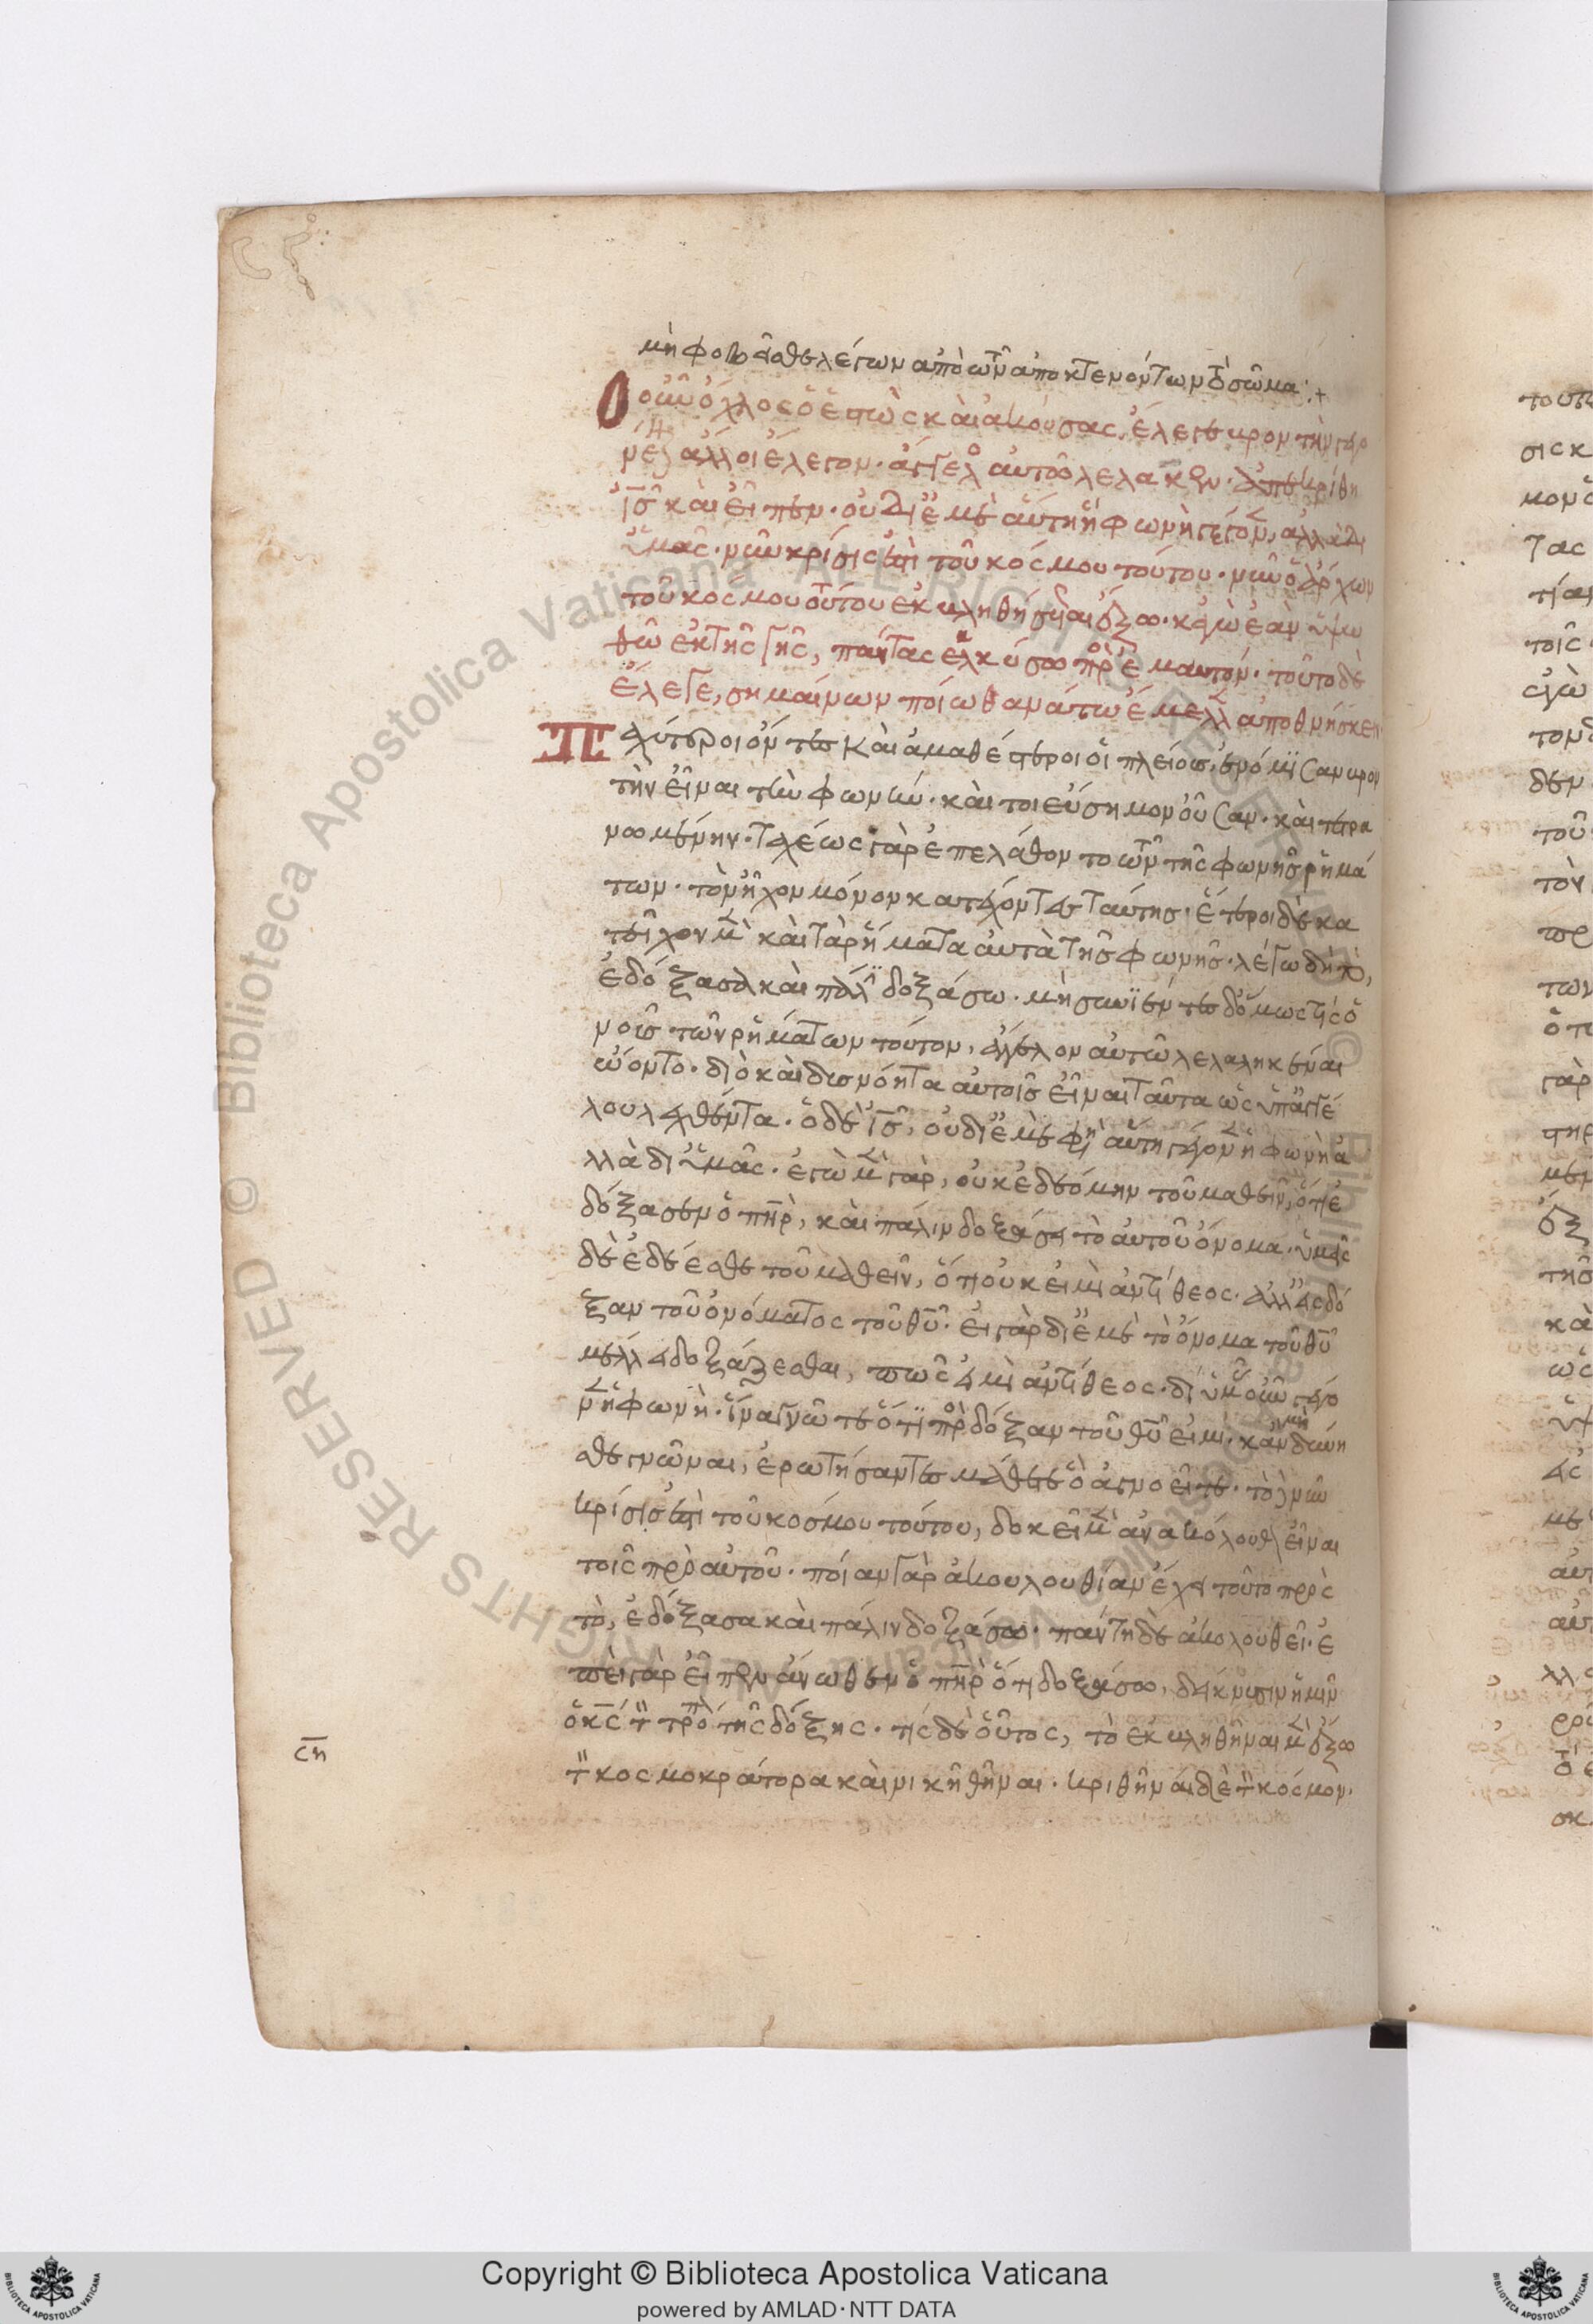 μὴ φοβεῖσθε λέγων ἀπὸ τῶν ἀποκτενόντων τὸ σῶμα:+
Ὁ οὖν ὄχλος ὁ ἑστὼς καὶ ἀκούσας, ἔλεγε βροντὴν γεγο
νέν(αι) ἄλλοι ἔλεγον· ἄγγελο(ς) αὐτῶ λελάληκεν· ἀπεκρίθη
ἰς καὶ εἶπεν· οὐ δι ἐμὲ αὕτη ἡ φωνὴ γέγονεν, ἀλλὰ δι
ὑμᾶς· νῦν κρίσις ἐστὶ τοῦ κόσμου τούτου· νῦν ὁ ἄρχων
τοῦ κόσμου τούτου ἐκβληθήσεται ἔξω· κἀγὼ ἐὰν ὑψω
θῶ ἐκ τῆς γῆς, πάντας ἑλκύσω πρὸς ἐμαυτόν· τοῦτο δὲ
ἔλεγε, σημαίνων ποίω θανάτω ἔμελλ ἀποθνήσκειν
Παχύτεροι ὄντες καὶ ἀμαθέστεροι οἱ πλείους, ἐνόμιζαν βρον
τὴν εἶναι τὴν φωνήν· καίτοι εὔσημον οὖσαν· καὶ τετρα
νωμένην· ταχέως γὰρ ἐπελάθοντο τῶν τῆς φωνῆς ῥημά
των· τὸν ἦχον μόνον κατέχοντες ταύτης· ἕτεροι δὲ κα
τεῖχον μὲν καὶ τὰ ῥήματα αὐτὰ τῆς φωνῆς· λέγω δὴ τὸ,
ἐδόξασα καὶ πάλιν δοξάσω· μὴ συνϊέντες δ ὅμως τίς ὁ
νοῦς τῶν ῥημάτων τούτων, ἄγγελον αὐτῶ λελαληκέναι
ὤοντο· διὸ καὶ δυσνόητα αὐτοῖς εἶναι ταῦτα ὡς ὑπ ἀγγέ
λου λαχθέντα· ὁ δὲ ἰς, οὐ δι ἐμέ φησιν αὕτη γέγονεν ἡ φωνὴ ἀ
λλὰ δι ὑμᾶς· ἐγὼ μὲν γὰρ, οὐκ ἐδεόμην τοῦ μαθεῖν, ὅτι ἐ
δόξασεν ὁ πηρ, καὶ πάλιν δοξάσει τὸ αὐτοῦ ὄνομα· ὑμεῖς
δὲ ἐδέεσθε τοῦ μαθεῖν, ὅτι οὐκ εἰμὶ ἀντίθεος· ἀλλ εἰς δό
ξαν τοῦ ὀνόματος τοῦ θυ· εἰ γὰρ δι ἐμὲ τὸ ὄνομα τοῦ θυ
μέλλει δοξάζεσθαι, πῶς εἰμὶ ἀντίθεος· δι ὑμᾶς οὖν γέγο
νεν ἡ φωνὴ· ἵνα γνῶτε ὅτι πρὸς δόξαν τοῦ θυ εἰμι· κἂν μὴ δύνη
σθε γνῶναι, ἐρωτήσαντες μάθετε ὃ ἀγνοεῖτε· τὸ νῦν
κρίσις ἐστὶ τοῦ κοσμου τούτου, δοκεῖ μὲν ἀνακόλουθ εἶναι
τοῖς πρὸ αὐτοῦ· ποίαν γὰρ ἀκουλουθίαν ἔχει τοῦτο πρὸς
τὸ, ἐδόξασα καὶ πάλιν δοξάσω· πάντη δὲ ἀκολουθεῖ· ἐ
πεὶ γὰρ εἶπεν ἄνωθεν ὁ πηρ ὅτι δοξάσω, δείκνυσιν ἡμῖν
ὁ κς τὸν τρόπον τῆς δόξης· τίς δὲ οὗτος, τὸ ἐκβληθῆναι μὲν ἔξω
τὸν κοσμοκράτορα καὶ νικηθῆναι· κριθῆναι δὲ τὸν κόσμον·
ςη
Copyright © Biblioteca Apostolica Vaticana
powered by AMLAD·NTT DATA